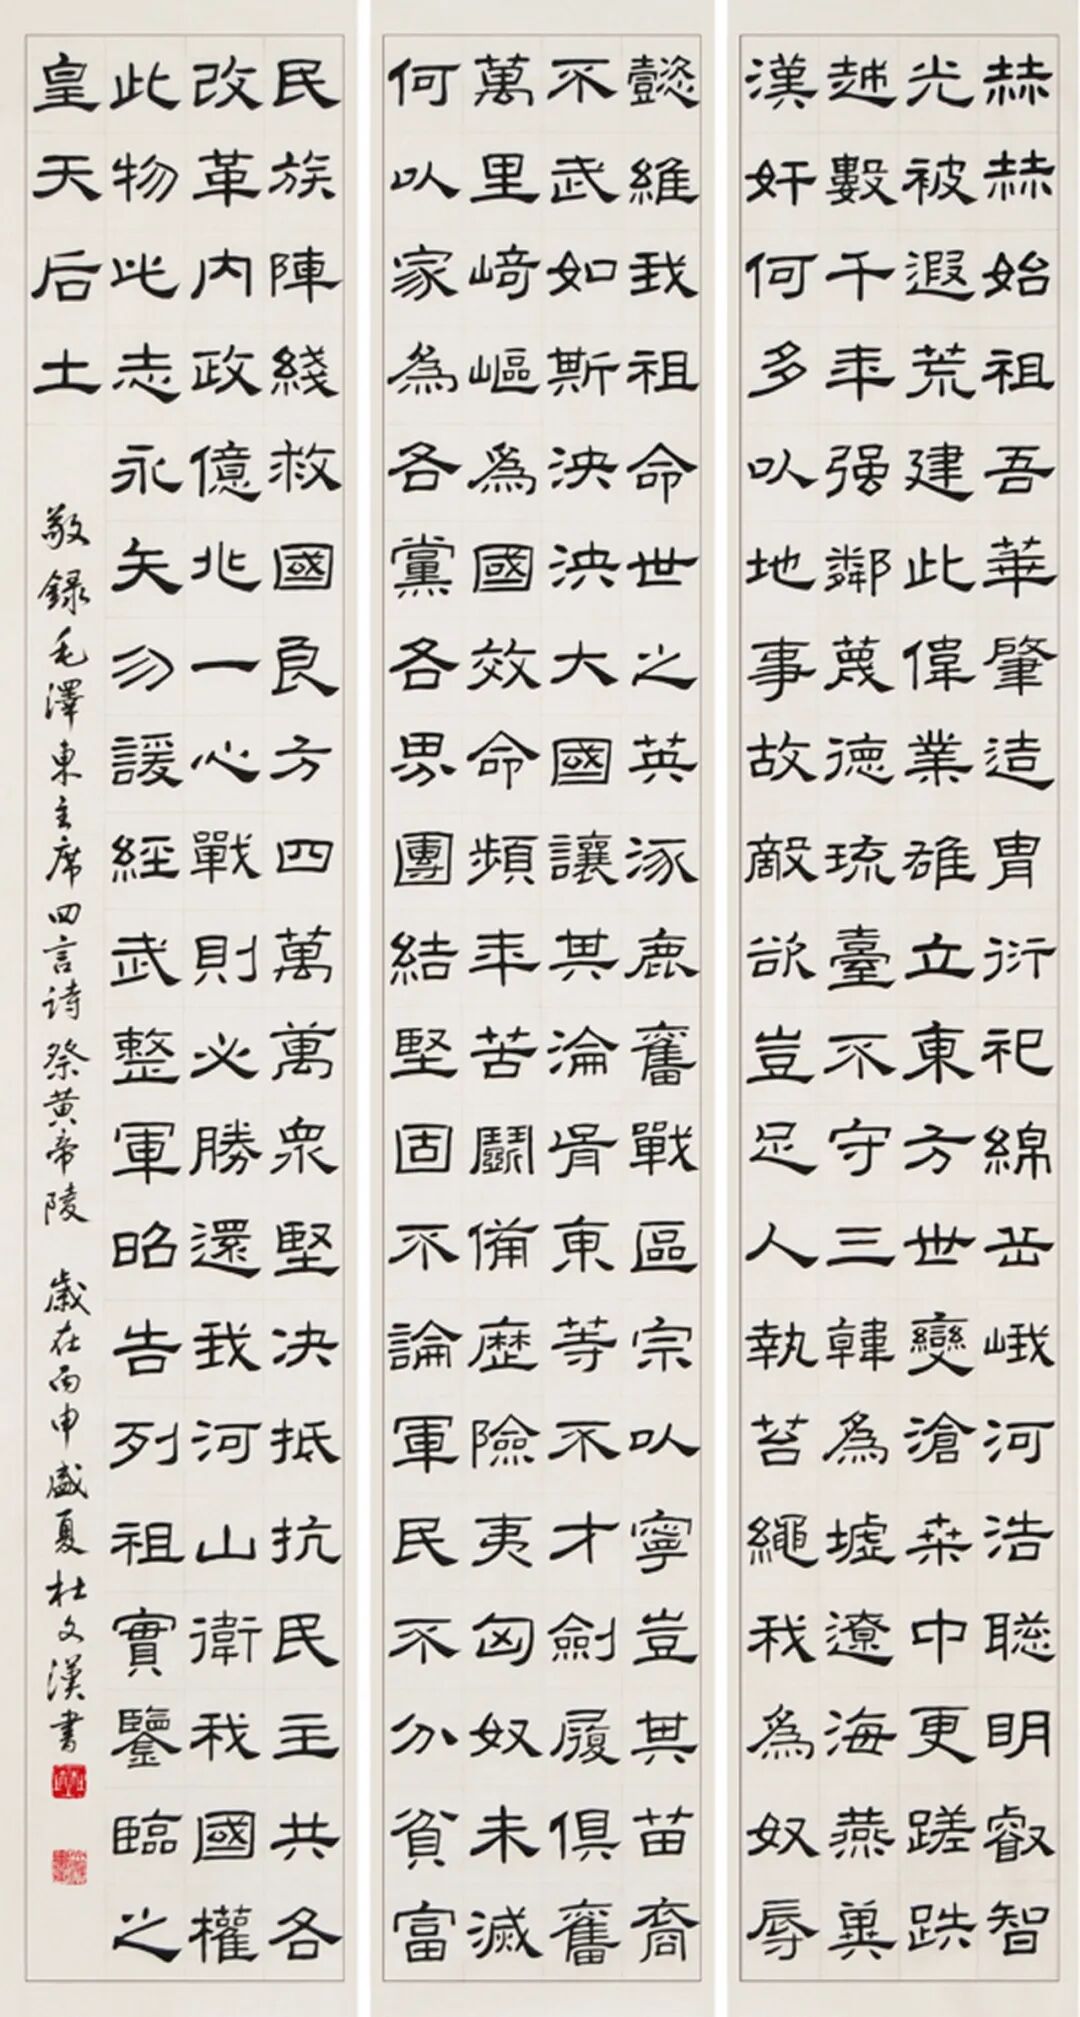 赫赫始祖吾華肇造冑衍祀綿岳峨河浩聰明叡智
光被遐荒建此偉業雄立東方世變滄桒中更蹉跌
越數千年强鄰蔑德琉臺不守三韓為墟遼海燕冀
漢奸何多以地事故敵欲豈足人執苔繩我為奴辱
懿維我祖命世之英涿鹿奮戰區宗以寧豈其苗裔
不武如斯泱泱大國讓其淪胥東等不才劍履俱奮
萬里崎嶇為國效命頻年苦鬭備歷險夷匈奴未滅
何以家為各黨各界團結堅固不論軍民不分貧富
民族陣綫救國良方四萬萬衆堅决抵抗民主共各
改革内政億兆一心戰則必勝還我河山衛我國權
此物此志永矢勿諼經武整軍昭告列祖實鑒臨之
皇天后土
敬録毛澤東主席四言詩祭黄帝陵 歲在丙申盛夏杜文漢書